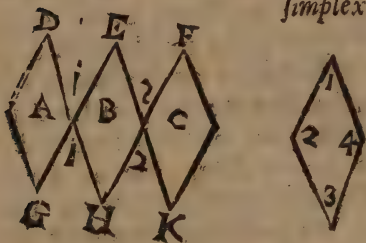 simplex
D E F
1
i 2
A B C
1 2
G H K
1
2 4
3